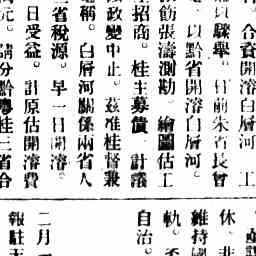 合資開溶白層河工
以驟舉。日前朱省長曾
以黔省開溶白層河。
飭張濤測勘。繪圖估工
招商。桂主募債。計議
政變中止。茲准桂督兼
電稱。白層河關係兩省人
省稅源。早一日開溶。
日受益。計原估開溶費
元。請分黔粵桂三省合
休。非
維持國
軌。
自治。
二月一
報駐